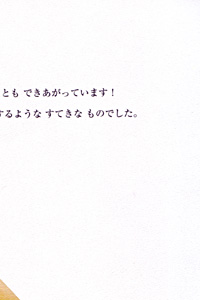 とも できあがっています!
するような すてきな ものでした。